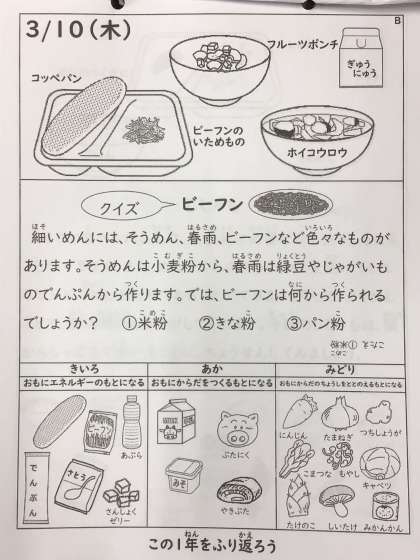 3/10(木)
B
フルーツポンチ
ぎゅう
にゅう
コッペパン
ビーフンの
いためもの
ホイコウロウ
クイズ
ビーフン
細いめんには、そうめん、春雨、ビーフンなど色々なものが
あります。そうめんは小麦粉から、春雨は緑豆やじゃがいも
のでんぷんから作ります。では、ビーフンは何から作られる
でしょうか? ①米粉 ②きな粉 ③パン粉
こたえ ①米粉
きいろ
おもにエネルギーのもとになる
あか
おもにからだをつくるもとになる
みどり
おもにからだのちょうしをととのえるもとになる
ビーフン
あぶら
でんぷん
さとう
さんしょく
ゼリー
ぶたにく
みそ
やきぶた
にんじん
たまねぎ
つちしょうが
こまつな
もやし
キャベツ
たけのこ
しいたけ
みかんかん
この1年をふり返ろう